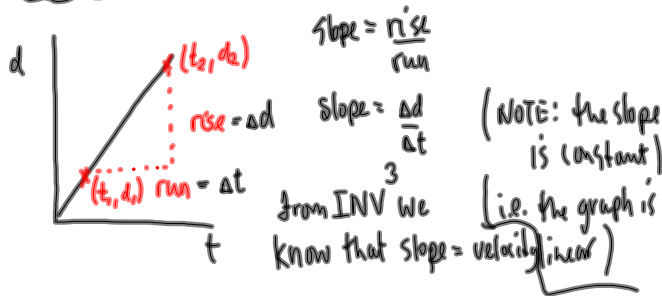 d
(t₂, d₂)
rise = Δd
(t₁, d₁) run = Δt
t
slope = rise
run
slope = Δd
Δt
3
from INV we
know that slope = velocity
(NOTE: the slope
is constant)
(i.e. the graph is
linear)